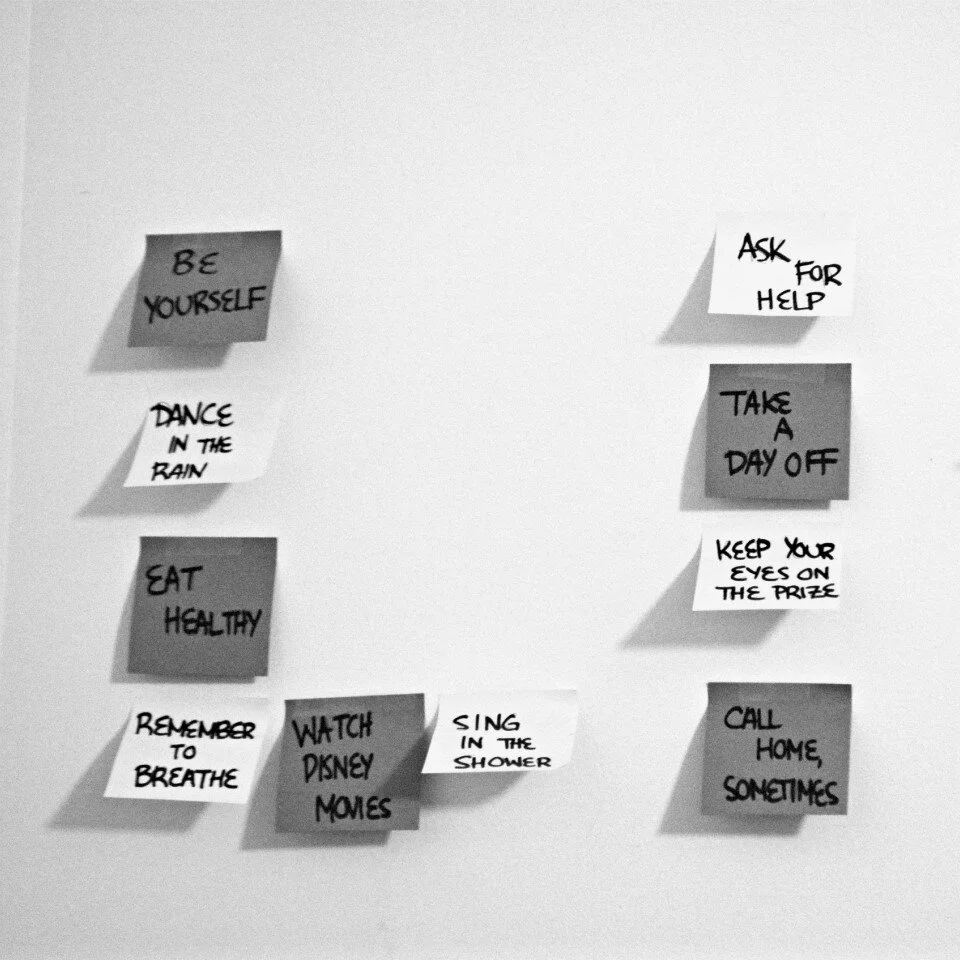 BE
YOURSELF
DANCE
IN THE
RAIN
EAT
HEALTHY
REMEMBER
TO
BREATHE
WATCH
DISNEY
MOVIES
SING
IN THE
SHOWER
ASK
FOR
HELP
TAKE
A
DAY OFF
KEEP YOUR
EYES ON
THE PRIZE
CALL
HOME,
SOMETIMES